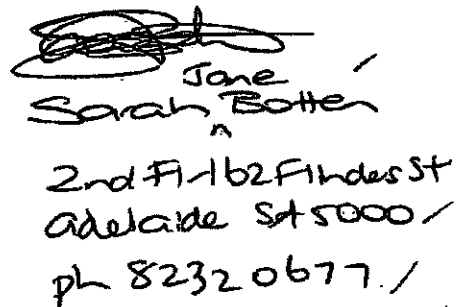 Jane
Sarah ^ Botten
2nd Fl-162 Flinders St
adelaide SA 5000
ph 8232 0677